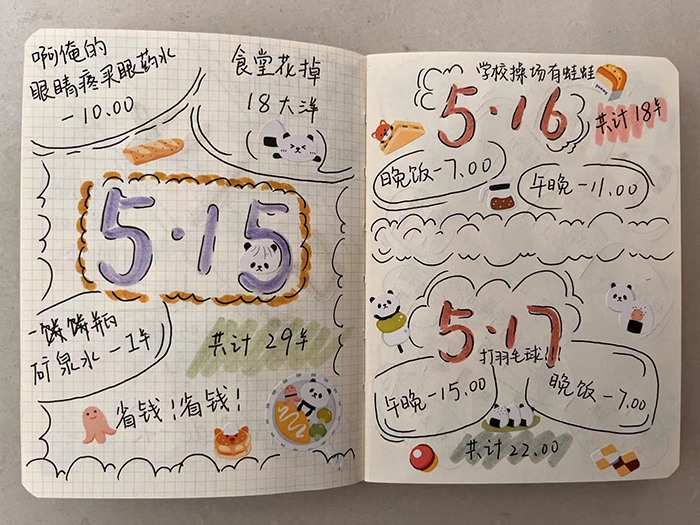 啊俺的
眼睛疼买眼药水
-10.00
食堂花掉
18大洋
5·15
矿泉水-1半
共计29半
省钱!省钱!
学校操场有蛙蛙
5·16
共计18半
晚饭-7.00
午晚-11.00
5·17
打羽毛球!!!
午晚-15.00
晚饭-7.00
共计22.00